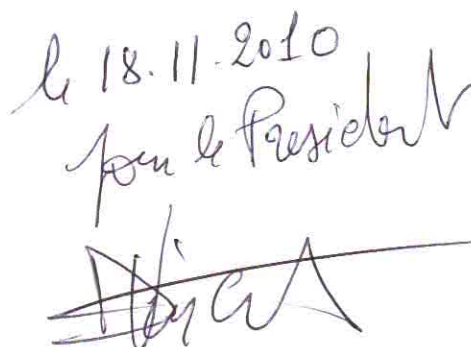 le 18.11.2010
pour le President